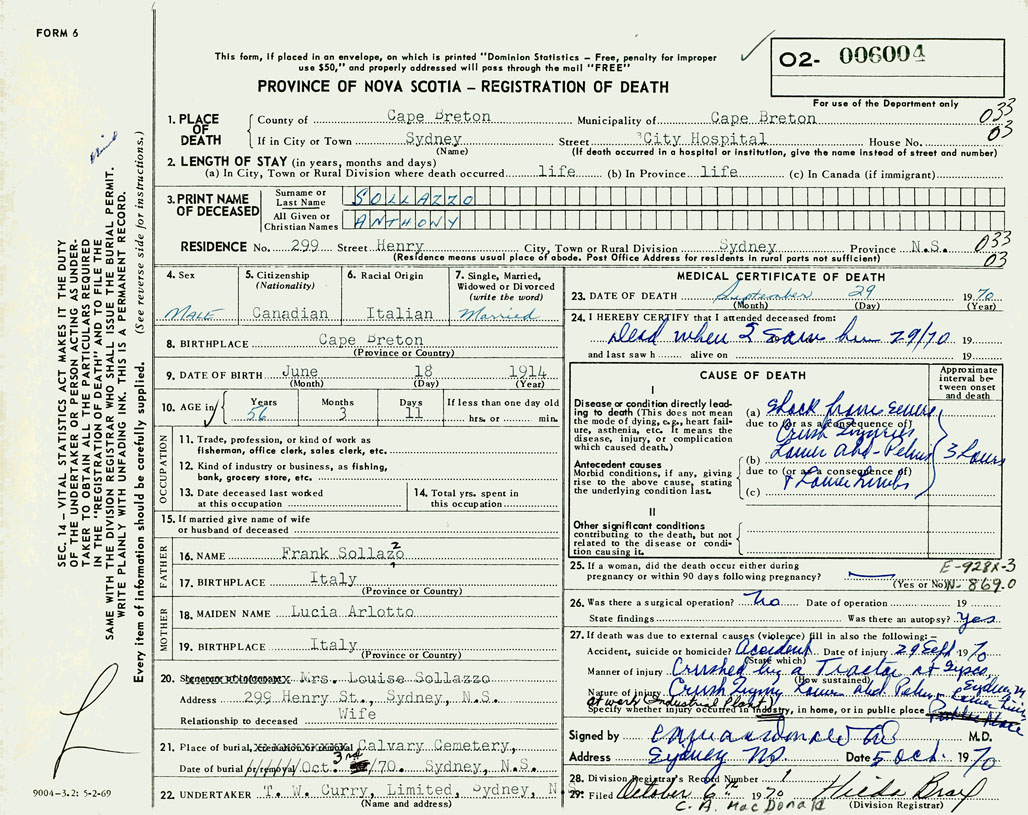 FORM 6
This form, if placed in an envelope, on which is printed "Dominion Statistics – Free, penalty for improper
use $50," and properly addressed will pass through the mail "FREE"
O2- 006004
PROVINCE OF NOVA SCOTIA – REGISTRATION OF DEATH
For use of the Department only
1. PLACE OF DEATH
County of Cape Breton Municipality of Cape Breton 033
If in City or Town Sydney Street City Hospital House No. 03
(Name) (If death occurred in a hospital or institution, give the name instead of street and number)
2. LENGTH OF STAY (in years, months and days)
(a) In City, Town or Rural Division where death occurred life (b) In Province life (c) In Canada (if immigrant)
3. PRINT NAME OF DECEASED
Surname or Last Name SOLLAZZO
All Given or Christian Names ANTHONY
RESIDENCE No. 299 Street Henry City, Town or Rural Division Sydney Province N.S. 033
(Residence means usual place of abode. Post Office Address for residents in rural parts not sufficient) 03
4. Sex
MALE
5. Citizenship
(Nationality)
Canadian
6. Racial Origin
Italian
7. Single, Married,
Widowed or Divorced
(write the word)
Married
8. BIRTHPLACE Cape Breton
(Province or Country)
9. DATE OF BIRTH June 18 1914
(Month) (Day) (Year)
10. AGE in Years Months Days If less than one day old
56 3 11 hrs. or min.
OCCUPATION
11. Trade, profession, or kind of work as
fisherman, office clerk, sales clerk, etc.
12. Kind of industry or business, as fishing,
bank, grocery store, etc.
13. Date deceased last worked
at this occupation
14. Total yrs. spent in
this occupation
15. If married give name of wife
or husband of deceased
FATHER
16. NAME Frank Sollazo
z
17. BIRTHPLACE Italy
(Province or Country)
MOTHER
18. MAIDEN NAME Lucia Arlotto
19. BIRTHPLACE Italy
(Province or Country)
20. Mrs. Louise Sollazzo
Address 299 Henry St., Sydney, N.S.
Relationship to deceased Wife
21. Place of burial, cremation or removal Calvary Cemetery,
Date of burial or removal Oct. 3rd /70. Sydney, N.S.
22. UNDERTAKER T. W. Curry, Limited, Sydney, N.S.
(Name and address)
MEDICAL CERTIFICATE OF DEATH
23. DATE OF DEATH September 29 1970
(Month) (Day) (Year)
24. I HEREBY CERTIFY that I attended deceased from:
Dead when I saw him 29/70 19
and last saw h alive on 19
CAUSE OF DEATH
Approximate
interval be-
tween onset
and death
I
Disease or condition directly lead-
ing to death (This does not mean
the mode of dying, e.g., heart fail-
ure, asthenia, etc. It means the
disease, injury, or complication
which caused death.)
(a) Shock from severe
due to (or as a consequence of)
Crush Injuries
(b) Lower Abd - Pelvis 3 hours
due to (or as a consequence of)
& Lower Limbs
(c)
Antecedent causes
Morbid conditions, if any, giving
rise to the above cause, stating
the underlying condition last.
II
Other significant conditions
contributing to the death, but not
related to the disease or condi-
tion causing it.
25. If a woman, did the death occur either during
pregnancy or within 90 days following pregnancy?
(Yes or No)
E-928X-3
N-869.0
26. Was there a surgical operation? No Date of operation 19
State findings Was there an autopsy? Yes
27. If death was due to external causes (violence) fill in also the following:–
Accident, suicide or homicide? Accident Date of injury 29 Sept 1970
(State which)
Manner of injury Crushed by a Tractor at Sysco,
(How sustained) Sydney
Nature of injury Crush Injury Lower Abd Pelvis & Lower Limbs
at work (Industrial Plant)
Specify whether injury occurred in industry, in home, or in public place Public Place
Signed by M.D.
Address Sydney NS. Date 5 Oct. 1970
28. Division Registrar's Record Number 1
29. Filed October 6th 1970 Hilda Bray
C. A. MacDonald (Division Registrar)
SEC. 14 – VITAL STATISTICS ACT MAKES IT THE DUTY
OF THE UNDERTAKER OR PERSON ACTING AS UNDER-
TAKER TO OBTAIN ALL THE PARTICULARS REQUIRED
IN THE "REGISTRATION OF DEATH" AND TO FILE THE
SAME WITH THE DIVISION REGISTRAR WHO SHALL ISSUE THE BURIAL PERMIT.
WRITE PLAINLY WITH UNFADING INK. THIS IS A PERMANENT RECORD.
Every item of information should be carefully supplied. (See reverse side for instructions.)
9004-3.2: 5-2-69